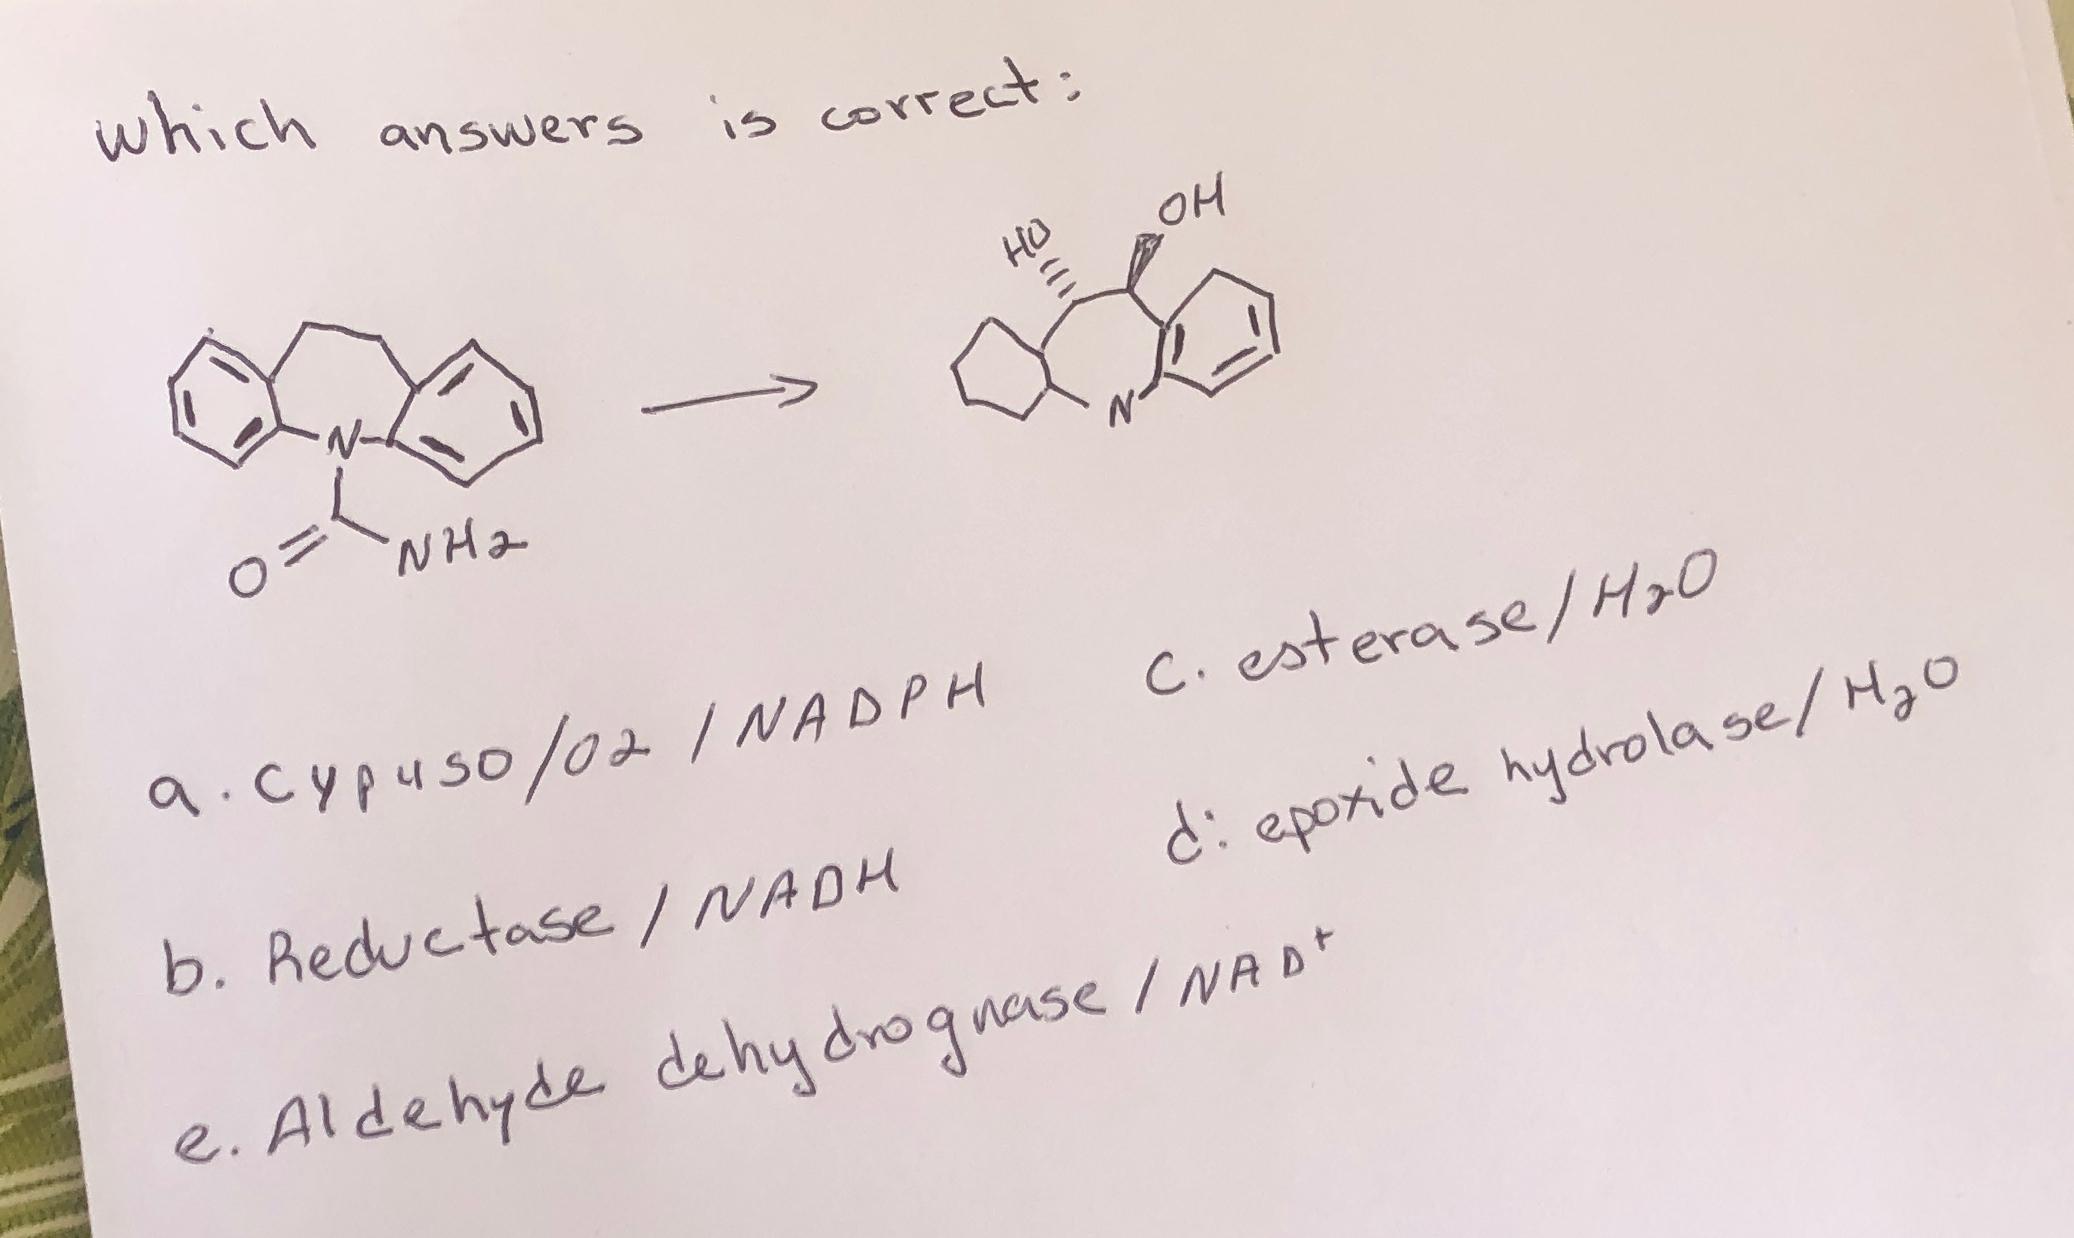 which answers is correct:
HO OH
N N
O NH2
a. Cyp450/O2 / NADPH
c. esterase/H2O
b. Reductase / NADH
d: epoxide hydrolase/H2O
e. Aldehyde dehydrognase / NAD+